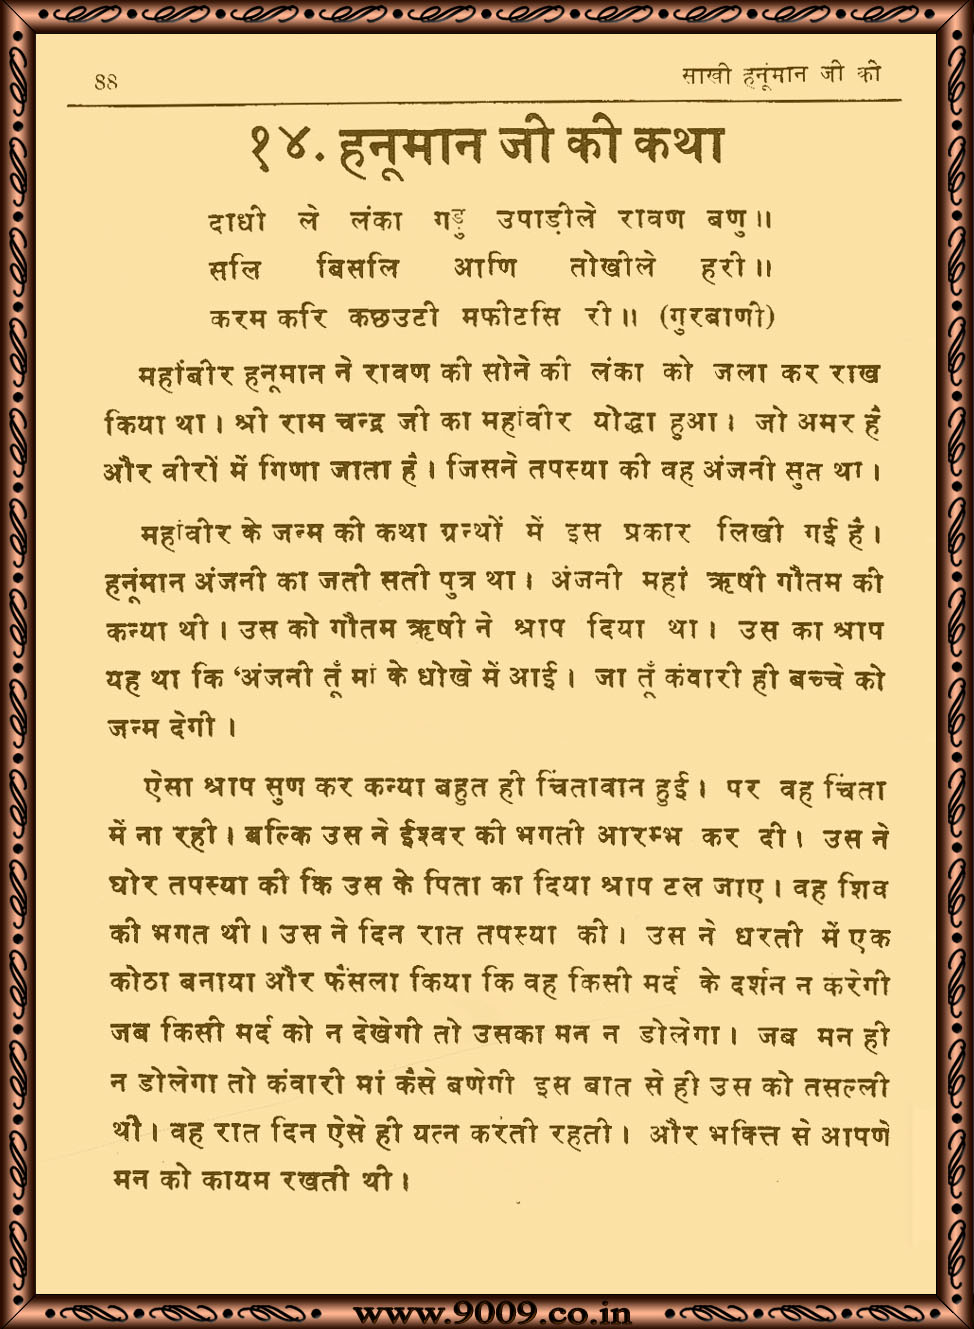 88
साखी हनूंमान जी की
१४. हनूमान जी की कथा
दाधी ले लंका गड़ु उपाड़ीले रावण बणु॥
सलि बिसलि आणि तोखीले हरी॥
करम करि कछउटी मफीटसि री॥ (गुरबाणी)
महांबीर हनूमान ने रावण की सोने की लंका को जला कर राख
किया था। श्री राम चन्द्र जी का महांवीर योद्धा हुआ। जो अमर है
और वीरों में गिणा जाता है। जिसने तपस्या की वह अंजनी सुत था।
महांवीर के जन्म की कथा ग्रन्थों में इस प्रकार लिखी गई है।
हनूंमान अंजनी का जती सती पुत्र था। अंजनी महां ऋषी गौतम की
कन्या थी। उस को गौतम ऋषी ने श्राप दिया था। उस का श्राप
यह था कि ‘अंजनी तूँ मां के धोखे में आई। जा तूँ कंवारी ही बच्चे को
जन्म देगी।
ऐसा श्राप सुण कर कन्या बहुत ही चिंतावान हुई। पर वह चिंता
में ना रही। बल्कि उस ने ईश्वर की भगती आरम्भ कर दी। उस ने
घोर तपस्या की कि उस के पिता का दिया श्राप टल जाए। वह शिव
की भगत थी। उस ने दिन रात तपस्या की। उस ने धरती में एक
कोठा बनाया और फैंसला किया कि वह किसी मर्द के दर्शन न करेगी
जब किसी मर्द को न देखेगी तो उसका मन न डोलेगा। जब मन ही
न डोलेगा तो कंवारी मां कैसे बणेगी इस बात से ही उस को तसल्ली
थी। वह रात दिन ऐसे ही यत्न करती रहती। और भक्ति से आपणे
मन को कायम रखती थी।
www.9009.co.in